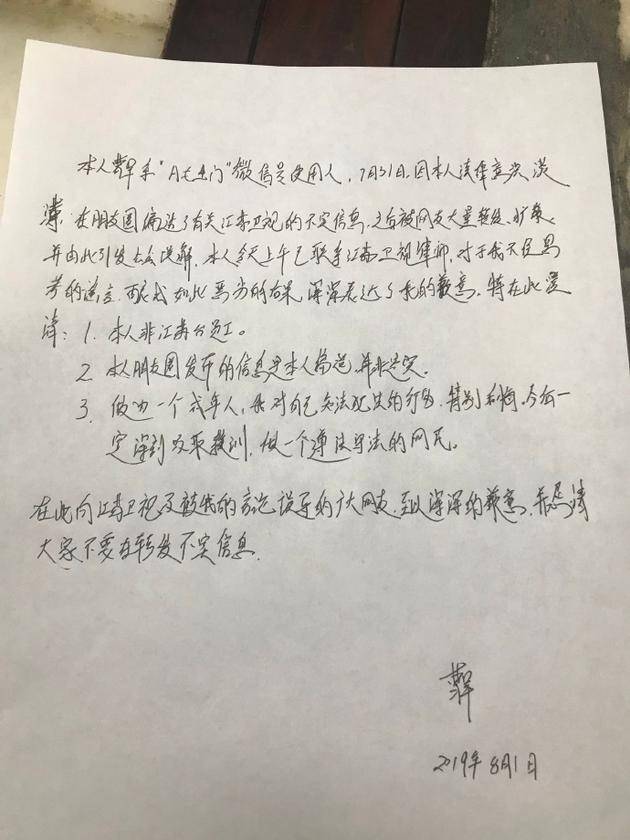 本人系"月七上门"微信号使用人,7月31日,因本人法律意识淡
薄,在朋友圈编造了有关江苏卫视的不实信息,之后被网友大量转发、扩散,
并由此引发大众误解,本人今天上午已联系江苏卫视律师,对于我不经思
考的谣言,酿成如此恶劣的后果,深深表达了我的歉意,特在此澄
清:1. 本人非江苏台员工。
2. 本人朋友圈发布的信息是本人编造,并非是实。
3. 做为一个成年人,我对自己知法犯法的行为,特别后悔,今后一
定深刻汲取教训,做一个遵法守法的网民。
在此向江苏卫视及被我的言论误导的广大网友,至以深深的歉意,并恳请
大家不要在转发不实信息.
2019年8月1日